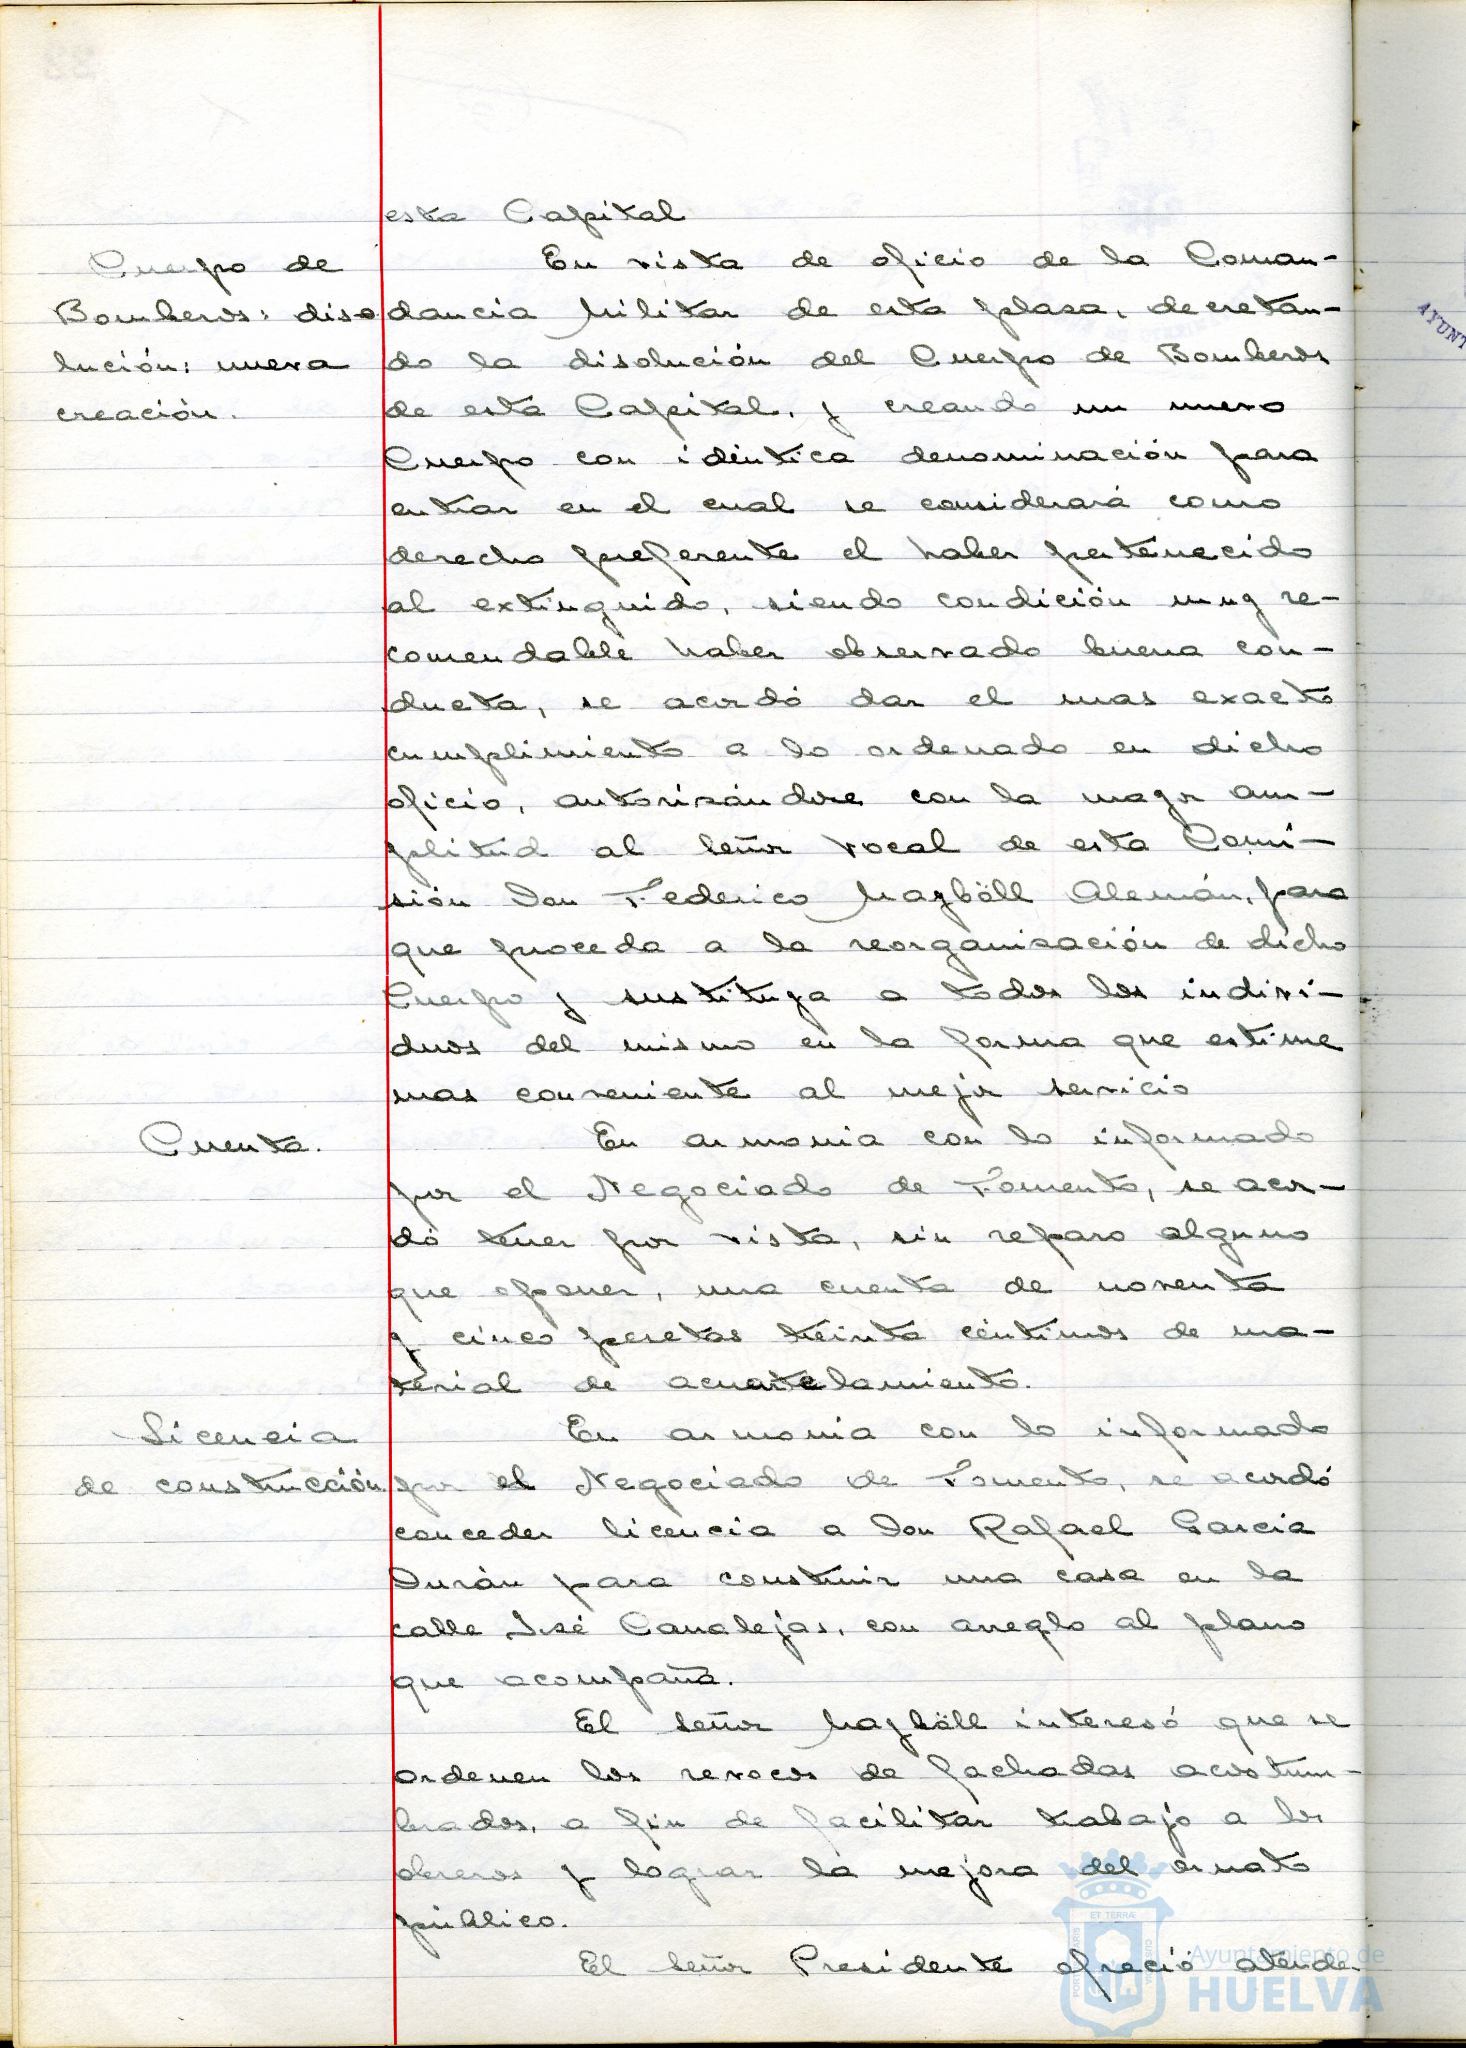 esta Capital
Cuerpo de
Bomberos: diso
lución: nueva
creación.
En vista de oficio de la Coman-
dancia Militar de esta plaza, decretan-
do la disolución del Cuerpo de Bomberos
de esta Capital, y creando un nuevo
Cuerpo con idéntica denominación para
entrar en el cual se considerará como
derecho preferente el haber pertenecido
al extinguido, siendo condición muy re-
comendable haber observado buena con-
ducta, se acordó dar el mas exacto
cumplimiento a lo ordenado en dicho
oficio, autorizándose con la mayor am-
plitud al señor vocal de esta Comi-
sión Don Federico Maybòll Alemán, para
que proceda a la reorganización de dicho
Cuerpo y sustituya a todos los indivi-
duos del mismo en la forma que estime
mas conveniente al mejor servicio
Cuenta.
En armonia con lo informado
por el Negociado de Fomento, se acor-
dó tener por vista, sin reparo alguno
que oponer, una cuenta de noventa
y cinco pesetas treinta céntimos de ma-
terial de acuartelamiento.
Licencia
de construcción
En armonia con lo informado
por el Negociado de Fomento, se acordó
conceder licencia a Don Rafael Garcia
Durán para construir una casa en la
calle José Canalejas, con arreglo al plano
que acompaña.
El señor Maybòll interesó que se
ordenen los revocos de fachadas acostum-
brados, a fin de facilitar trabajo a los
obreros y lograr la mejora del ornato
público.
El señor Presidente ofreció atende-
AYUNT
Ayuntamiento de
HUELVA